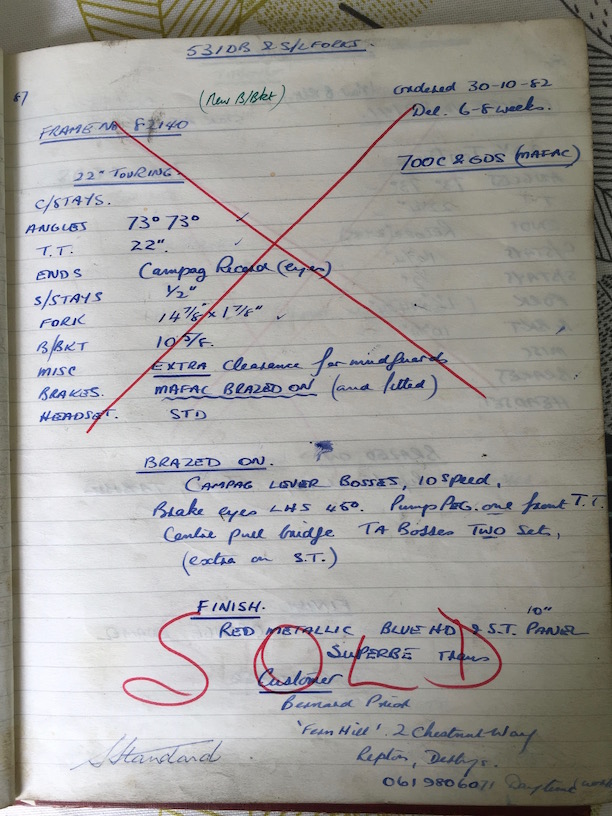 531DB & S/L FORKS.
87
(New B/Bkt)
ordered 30-10-82
Del. 6-8 weeks.
FRAME No 82140
700C & GDS (MAFAC)
22" TOURING.
C/STAYS.
ANGLES 73° 73° ✓
T.T. 22". ✓
ENDS Campag Record (eyes)
S/STAYS 1/2"
FORK 14 7/8" x 1 7/8" ✓
B/BKT 10 5/8.
MISC EXTRA Clearance for mudguards
BRAKES. MAFAC BRAZED ON (and fitted)
HEADSET. STD
BRAZED ON.
CAMPAG LEVER BOSSES, 10 speed,
Brake eyes LHS 45°. Pump PEG. one front T.T.
Centre pull bridge TA Bosses TWO Sets,
(extra on S.T.)
FINISH.
RED METALLIC BLUE HD & S.T. 10" PANEL
SUPERBE Trans
SOLD
Customer
Bernard Prior
'Fern Hill'. 2 Chestnut Way
Repton, Derbys.
Standard
061 9806071 Daytime work